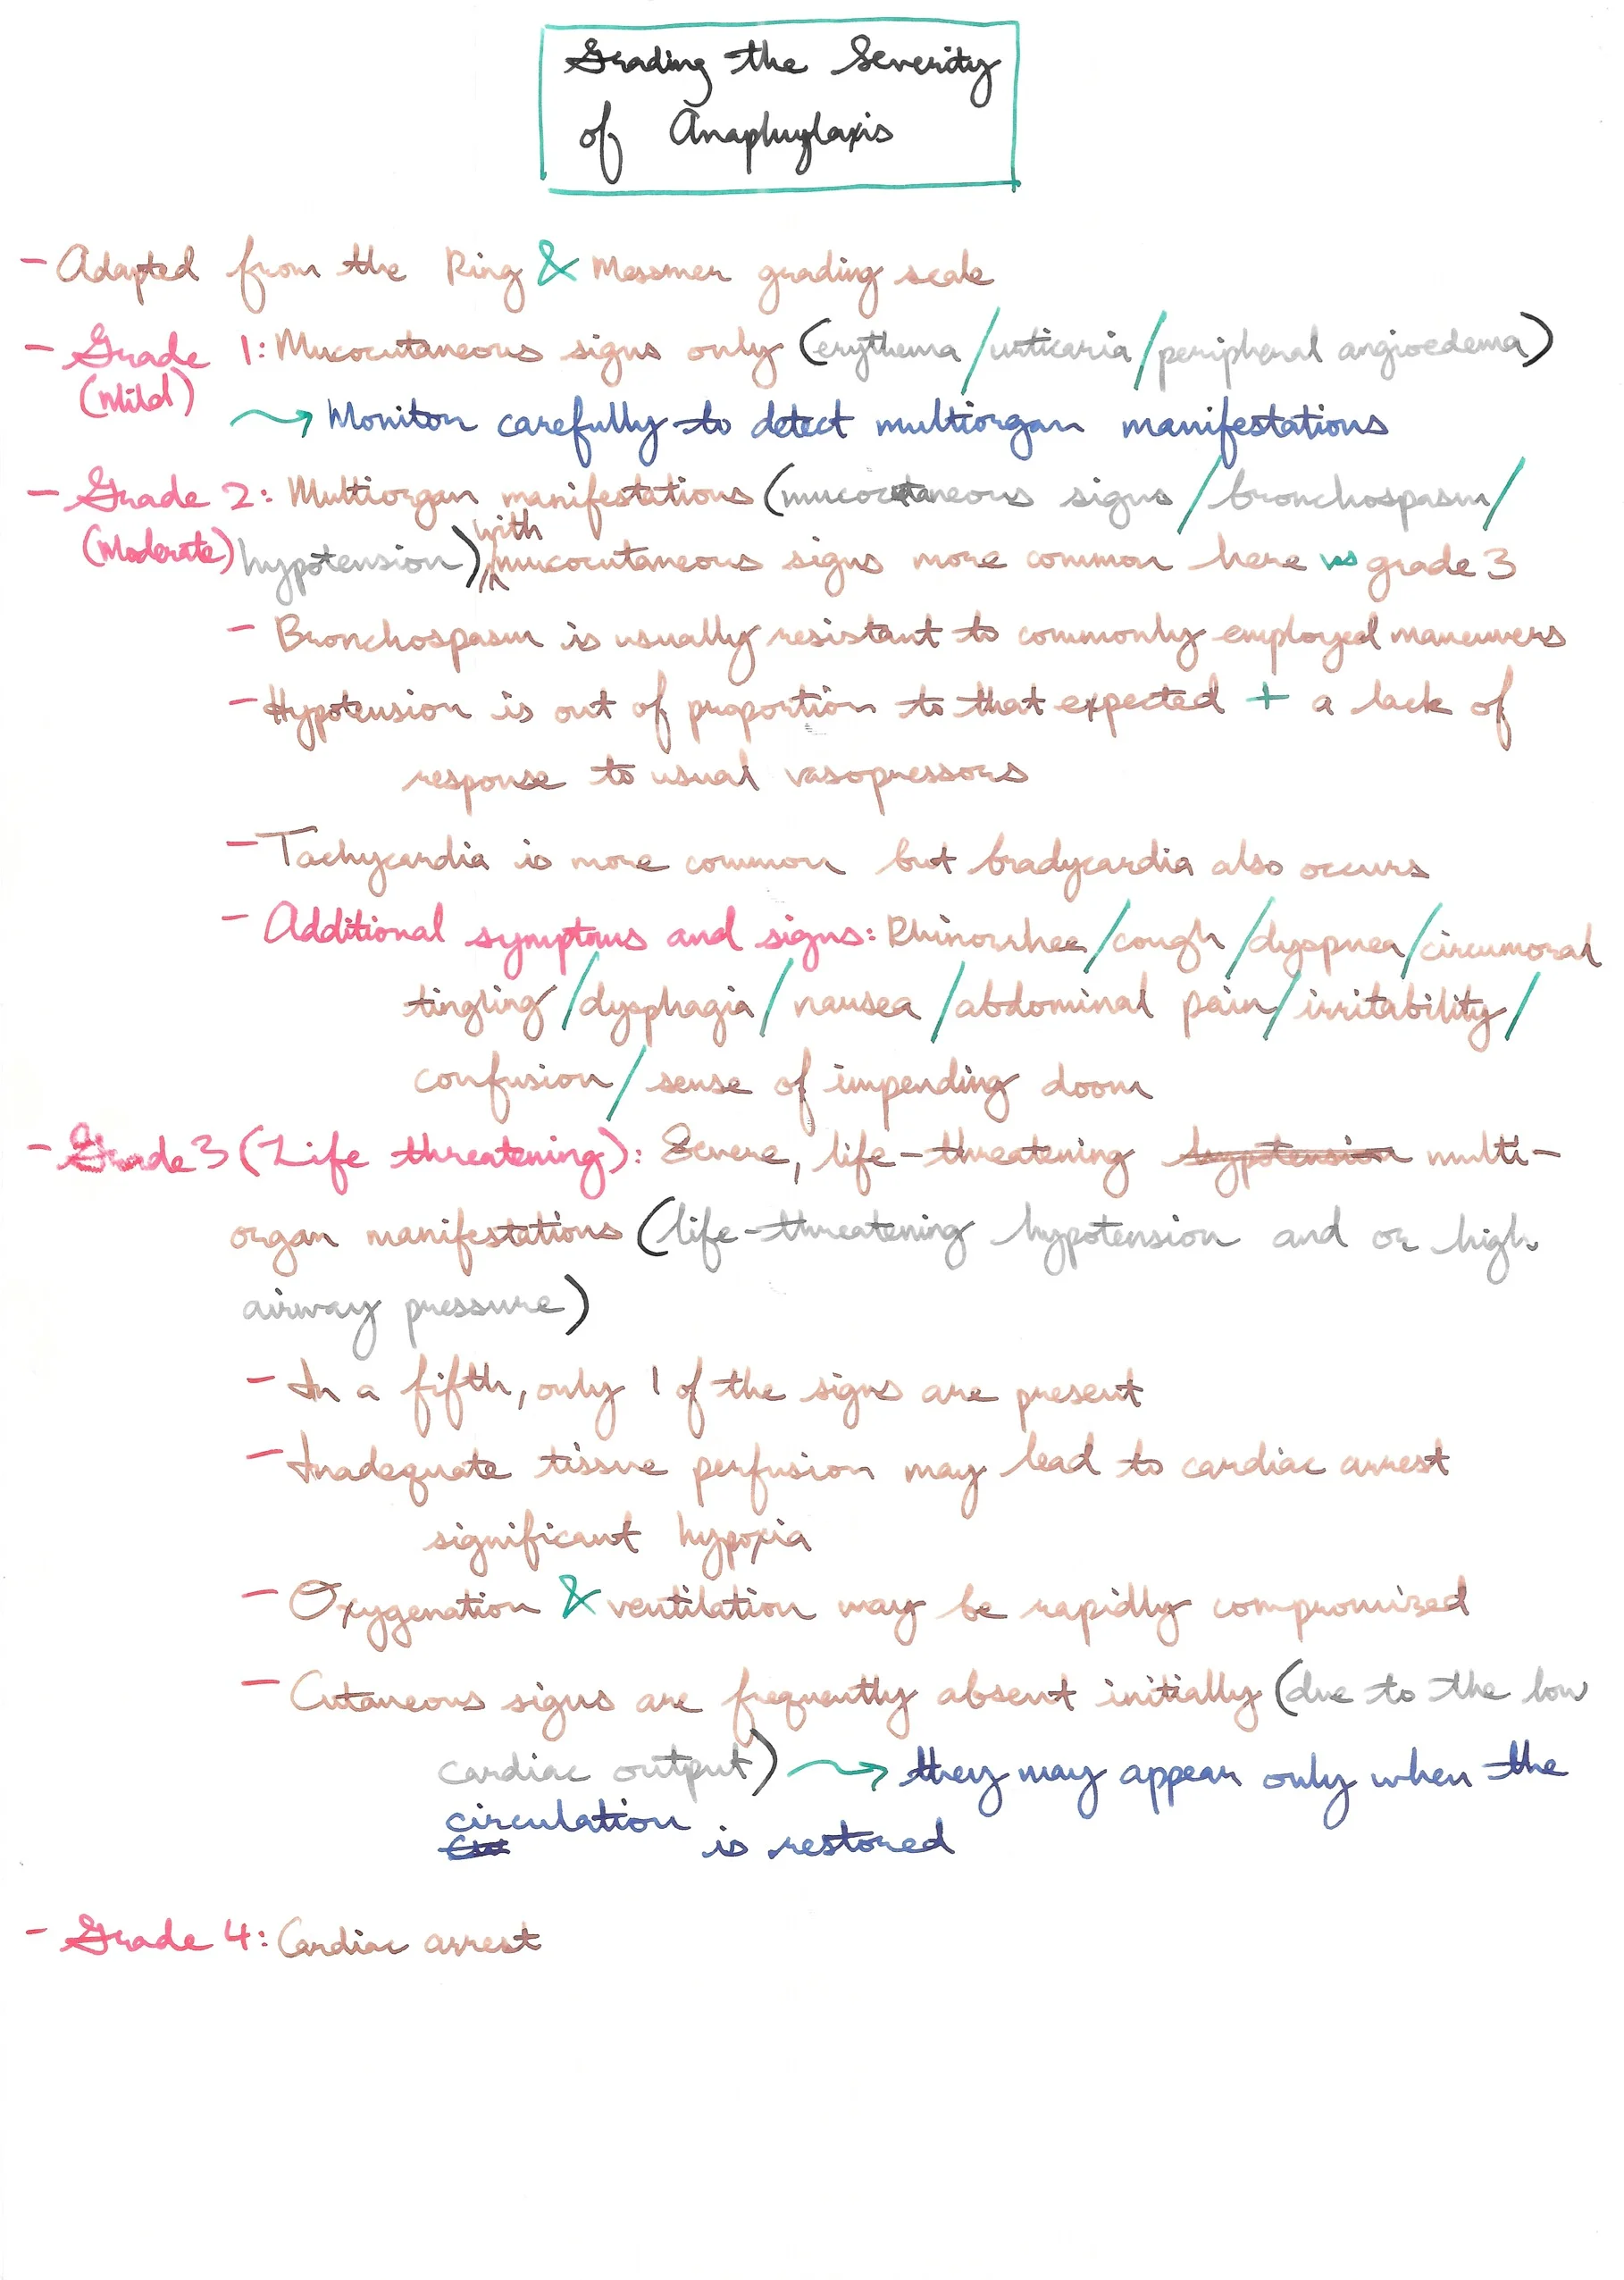 Grading the Severity
of Anaphylaxis
- Adapted from the Ring & Messmer grading scale
- Grade 1: Mucocutaneous signs only (erythema/urticaria/peripheral angioedema)
(Mild)
→ Monitor carefully to detect multiorgan manifestations
- Grade 2: Multiorgan manifestations (mucocutaneous signs/bronchospasm/
(Moderate) hypotension), with mucocutaneous signs more common here vs grade 3
- Bronchospasm is usually resistant to commonly employed maneuvers
- Hypotension is out of proportion to that expected + a lack of
response to usual vasopressors
- Tachycardia is more common but bradycardia also occurs
- Additional symptoms and signs: Rhinorrhea/cough/dyspnea/circumoral
tingling/dysphagia/nausea/abdominal pain/irritability/
confusion/sense of impending doom
- Grade 3 (Life threatening): Severe, life-threatening hypotension multi-
organ manifestations (life-threatening hypotension and or high
airway pressure)
- In a fifth, only 1 of the signs are present
- Inadequate tissue perfusion may lead to cardiac arrest
significant hypoxia
- Oxygenation & ventilation may be rapidly compromized
- Cutaneous signs are frequently absent initially (due to the low
cardiac output) → they may appear only when the
circulation is restored
- Grade 4: Cardiac arrest